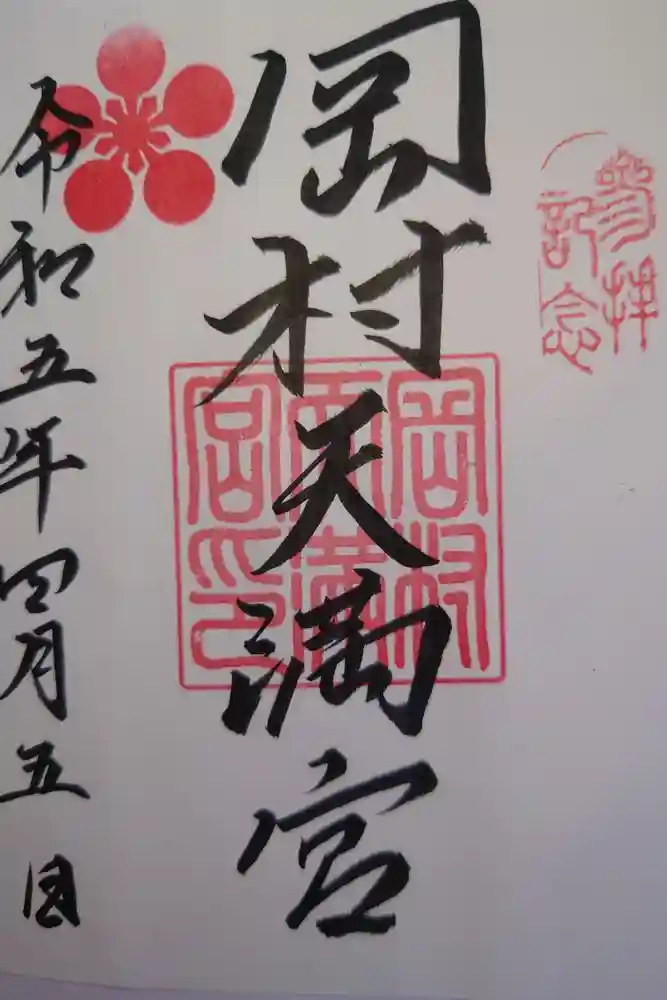 参拝
記念
岡村天満宮
岡村
天満
宮印
令和五年四月五日